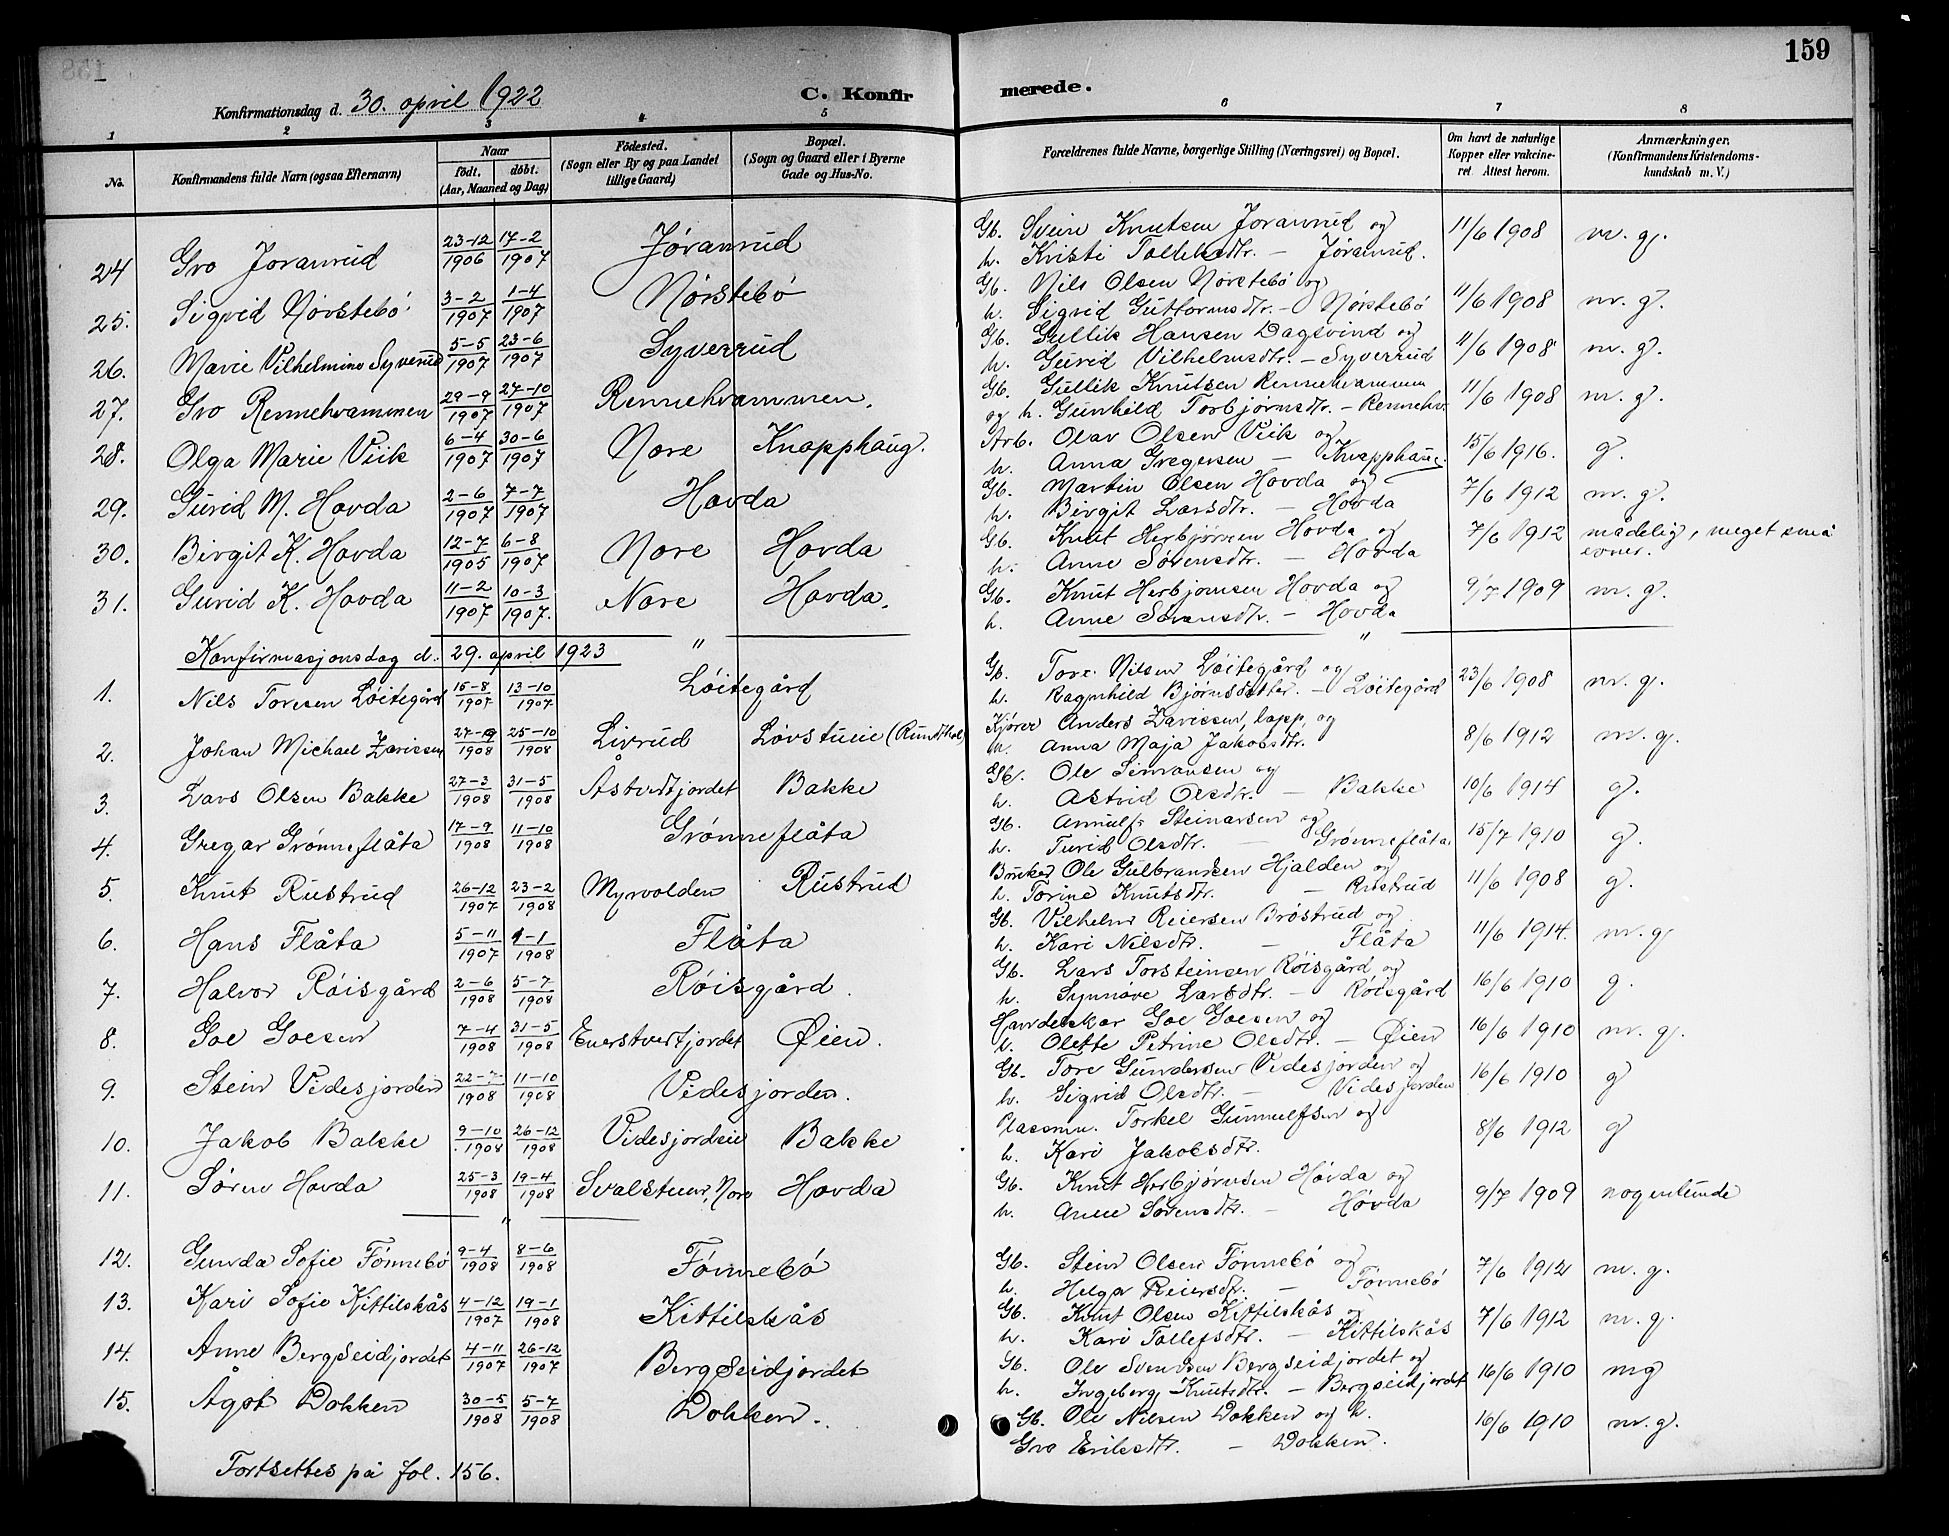 159
Konfirmationsdag d. 30. april 1922
C. Konfirmerede.
1 2 3 4 5 6 7 8
No. Konfirmandens fulde Navn (ogsaa Efternavn) Naar født. døbt. (Aar, Maaned og Dag) Fødested. (Sogn eller By og paa Landet tillige Gaard) Bopæl. (Sogn og Gaard eller i Byerne Gade og Hus-No. Forældrenes fulde Navne, borgerlige Stilling (Næringsvei) og Bopæl. Om havt de naturlige Kopper eller vakcineret Attest herom. Anmærkninger. (Konfirmandens Kristendomskundskab m. V.)
24 Gro Jøranrud 23-12 1906 17-2 1907 Jøranrud Gb. Svein Knutsen Jøranrud og 11/6 1908 m. g.
h. Kristi Tollefsdtr. - Jøranrud.
25. Sigrid Nørstebø 3-2 1907 1-4 1907 Nørstebø Gb. Nils Olsen Nørstebø og 11/6 1908 m. g.
h. Sigrid Guttormsdtr. - Nørstebø
26. Marie Vilhelmine Syverud 5-5 1907 23-6 1907 Syverrud Gb. Gullik Hansen Dagsvind og 11/6 1908 m. g.
h. Gurid Vilhelmsdtr. - Syverrud
27. Gro Rennehvammen 29-9 1907 27-10 1907 Rennehvammen. Gb. Gullik Knutsen Rennehvammen 11/6 1908 m. g.
og h. Gunhild Torbjørnsdtr. - Rennehv.
28. Olga Marie Viik 6-4 1907 30-6 1907 Nore Knapphaug. Arb. Olav Olsen Viik og 15/6 1916. g.
h. Anna Gregersen - Knapphaug
29. Gurid M. Hovda 2-6 1907 7-7 1907 Hovda Gb. Martin Olsen Hovda og 7/6 1912 m. g.
h. Birgit Larsdtr. - Hovda
30. Birgit K. Hovda 12-7 1905 6-8 1907 Nore Hovda Gb. Knut Herbjørnsen Hovda og 7/6 1912 mådelig, meget små evner.
h. Anne Sørensdtr. - Hovda
31. Gurid K. Hovda 11-2 1907 10-3 1907. Nore Hovda. Gb. Knut Herbjørnsen Hovda og 9/7 1909 m. g.
h. Anne Sørensdtr. - Hovda
Konfirmasjonsdag d. 29. april 1923 " "
1. Nils Toresen Løitegård 15-8 1907 13-10 1907 Løitegård Gb. Tore Nilsen Løitegård og 23/6 1908 m. g.
h. Ragnhild Bjørnsdatter. - Løitegård
2. Johan Michael Zarissen 1908 25-10 1908 Livrud Løvstueie Kjører Anders Zarissen, lapp, og 8/6 1912 m. g.
h. Anna Maja Jakobsdtr.
3. Lars Olsen Bakke 27-3 1908 31-5 1908 Åstvedtjordet Bakke Gb. Ole Simonsen og 10/6 1914 g.
h. Astrid Olsdtr. - Bakke
4. Gregar Grønneflåta 17-9 1908 11-10 1908 Grønneflåta Gb. Arnulf Steinarsen og 15/7 1910 g.
h. Turid Olsdtr. - Grønneflåta
5. Knut Rustrud 26-12 1907 23-2 1908 Myrvolden Rustrud Bruker Ole Gulbransen Hjalden og 11/6 1908 g.
h. Torine Knutsdtr. - Rustrud
6. Hans Flåta 5-11 1907 1-1 1908 Flåta Gb. Vilhelm Reiersen Brøstrud og 11/6 1914. m. g
h. Kari Nilsdtr. - Flåta
7. Halvor Røisgård 2-6 1908 5-7 1908 Røisgård. Gb. Lars Torsteinsen Røisgård og 16/6 1910 g.
h. Synnøve Larsdtr. - Røisgård
8. Goe Goesen 7-4 1908 31-5 1908 Øien. Handelskar Goe Goesen og 16/6 1910 m. g.
h. Olette Petrine Olsdtr. - Øien
9. Stein Videsjorden 22-7 1908 11-10 1908 Videsjorden. Gb. Tore Gundersen Videsjorden og 16/6 1910 g
h. Sigrid Olsdtr. - Videsjorden
10. Jakob Bakke 9-10 1908 26-12 1908 Videsjordeie Bakke Torkel Gunnulfsen og 8/6 1912 g
h. Kari Jakobsdtr.
11. Søren Hovda 25-3 1908 19-4 1908 Svalstuen, Nore Hovda Gb. Knut Herbjørnsen Hovda og 9/7 1909 nogenlunde
h. Anne Sørensdtr. - Hovda
"
12. Gunda Sofie Fønnebø 9-4 1908 8-6 1908 Fønnebø Gb. Stein Olsen Fønnebø og 7/6 1912 m. g.
h. Helga Reiersdtr. - Fønnebø
13. Kari Sofie Kittilskås 4-12 1907 19-1 1908 Kittilskås Gb. Knut Olsen Kittilskås og 7/6 1912 m. g.
h. Kari Tollefsdtr. - Kittilskås
14. Anne Bergseidjordet 4-11 1907 26-12 1907 Bergseidjordet Gb. Ole Svensen Bergseidjordet og 16/6 1910 mg
h. Ingeborg Knutsdtr. - Bergseidjordet
15. Ågot Dokken 30-5 1908 5-7 1908 Dokken. Gb. Ole Nilsen Dokken og h. 16/6 1910 m. g.
Gro Eriksdtr. - Dokken.
Fortsettes på fol. 156.